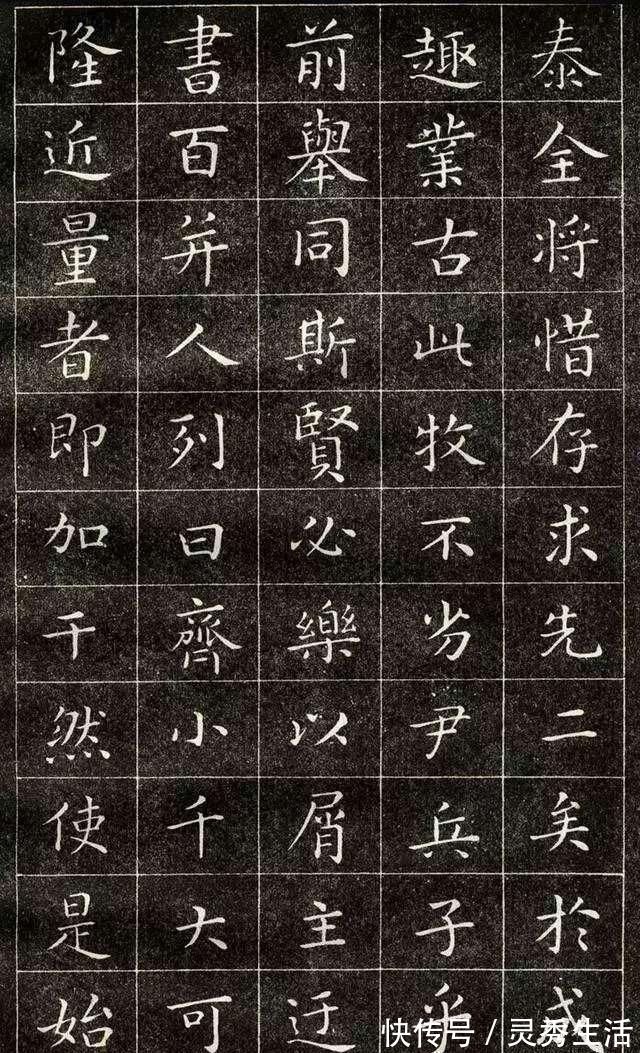 泰全将惜存求先二矣於
趣業古此牧不劣尹兵子乎
前舉同斯賢必樂以屑主迂
書百并人列曰齊小千大可
隆近量者即加干然使是始
快传号 / 灵秀生活